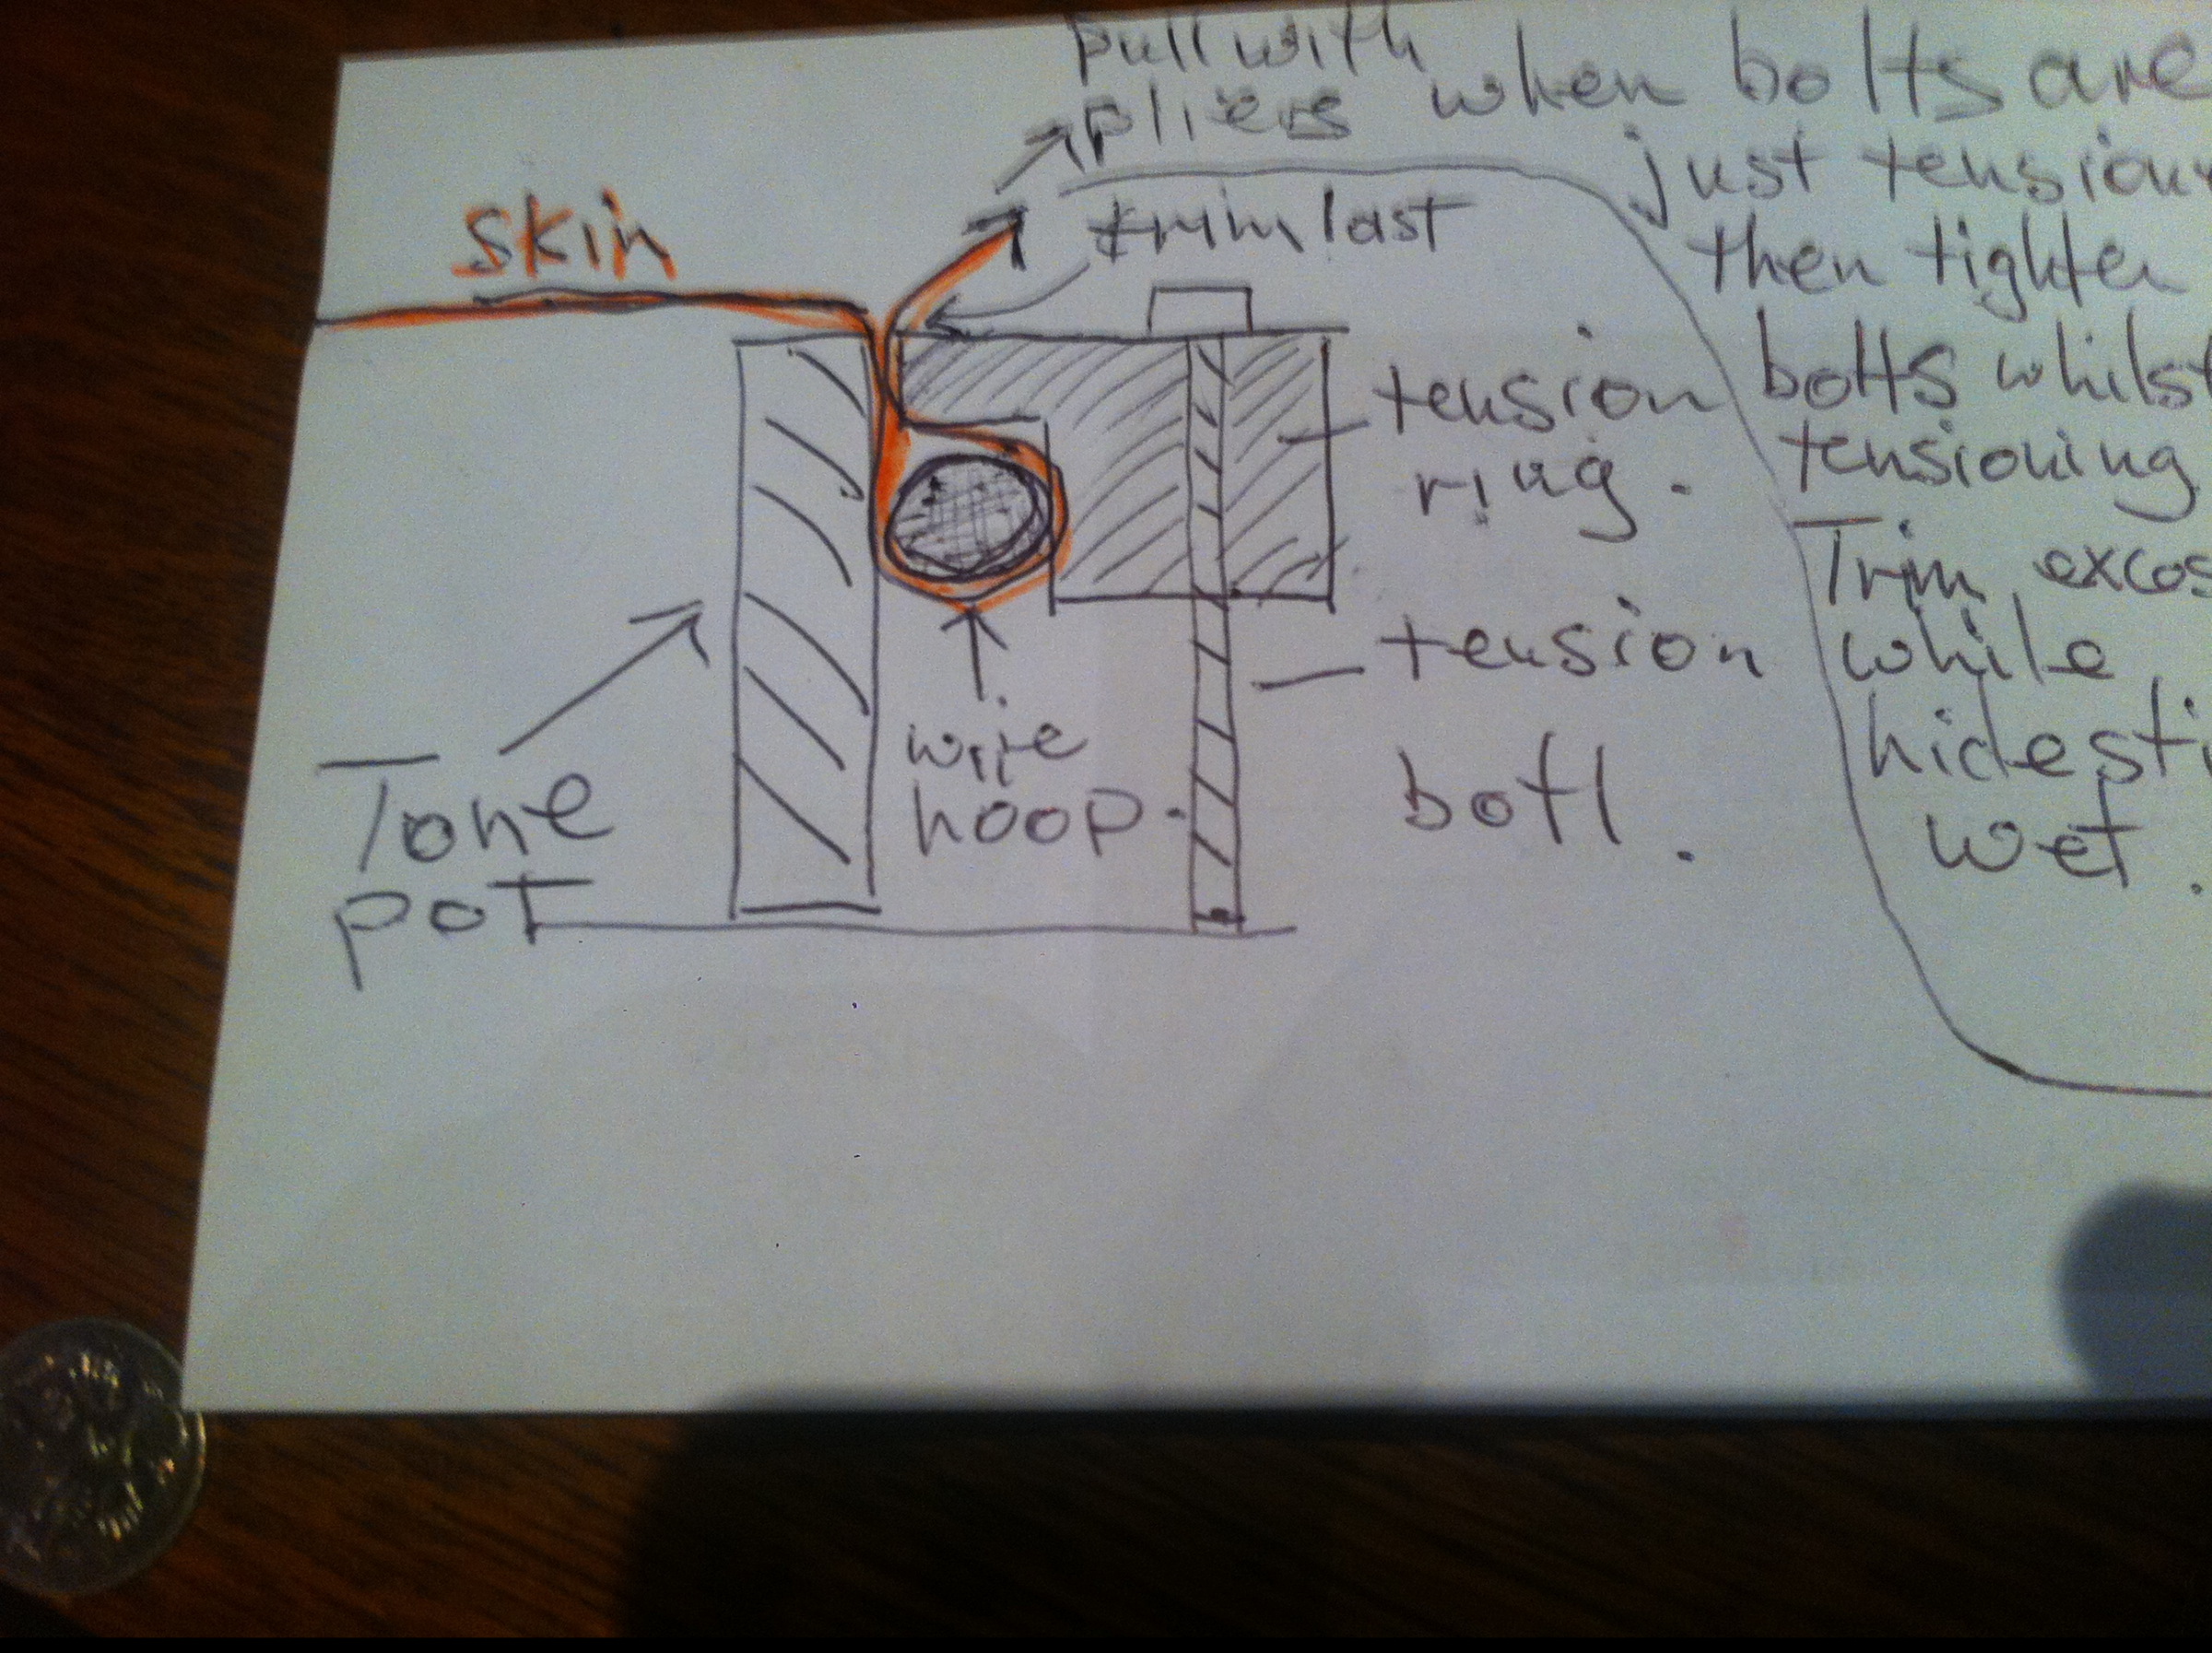 pull with
pliers when bolts are
just tension
then tighten
bolts whilst
tensioning
Trim exces
while
hide sti
wet.
trim last
skin
tension
ring.
tension
botl.
wire
hoop.
Tone
pot